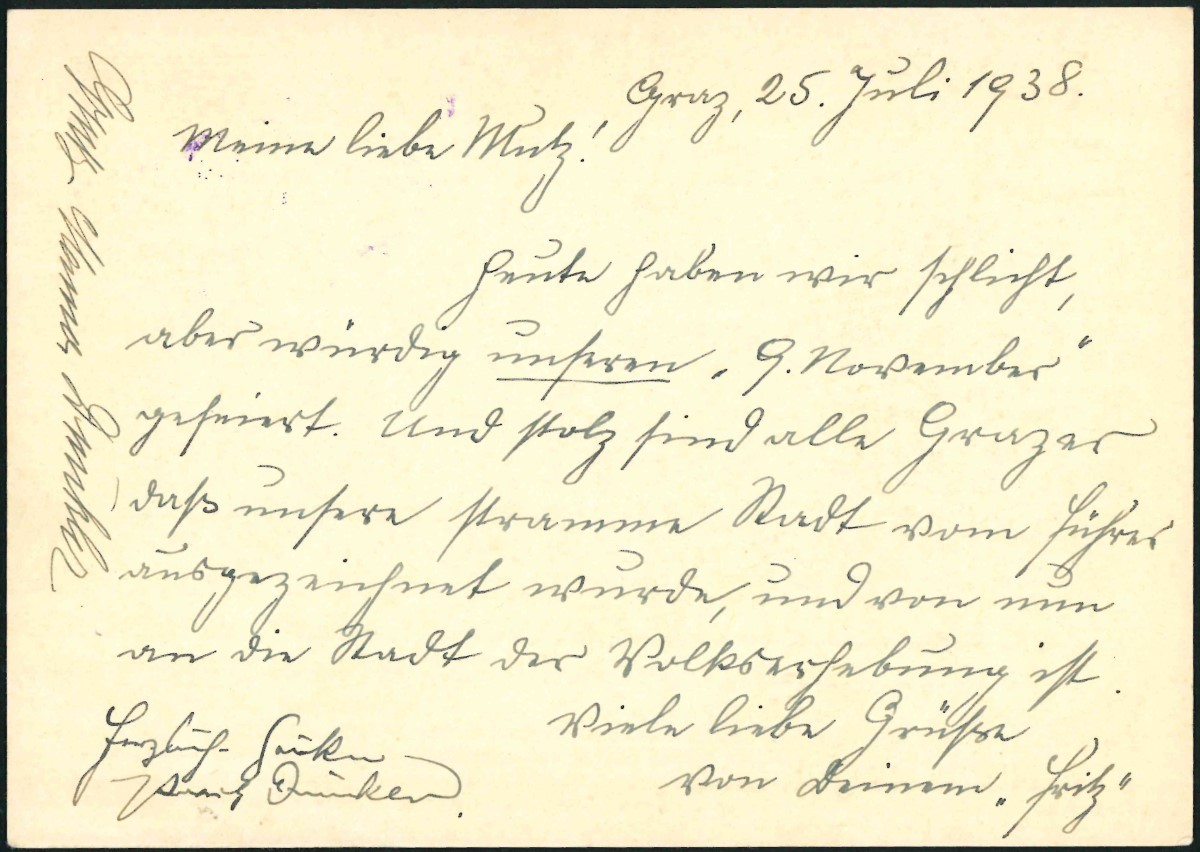 Graz, 25. Juli 1938.
Meine liebe Mutz!
Heute haben wir schlicht,
aber würdig unseren „9. November“
gefeiert. Und stolz sind alle Grazer
daß unsere stramme Stadt vom Führer
ausgezeichnet wurde, und von nun
an die Stadt der Volkserhebung ist.
Viele liebe Grüsse
von Deinem „Fritz“
Herzlich